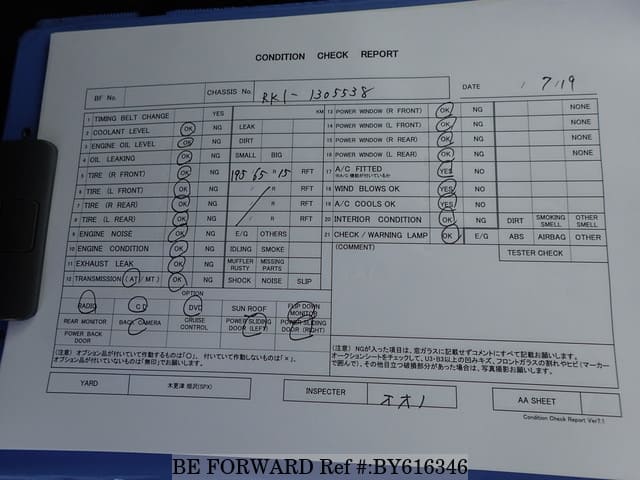 CONDITION CHECK REPORT
BF No. CHASSIS No. RK1-1305538 DATE / 7/19
1 TIMING BELT CHANGE YES KM
2 COOLANT LEVEL OK NG LEAK
3 ENGINE OIL LEVEL OK NG DIRT
4 OIL LEAKING OK NG SMALL BIG
5 TIRE (R FRONT) OK NG 195 65 R 15 RFT
6 TIRE (L FRONT) OK NG / R RFT
7 TIRE (R REAR) OK NG / R RFT
8 TIRE (L REAR) OK NG / R RFT
9 ENGINE NOISE OK NG E/G OTHERS
10 ENGINE CONDITION OK NG IDLING SMOKE
11 EXHAUST LEAK OK NG MUFFLER RUSTY MISSING PARTS
12 TRANSMISSION (AT/MT) OK NG SHOCK NOISE SLIP
13 POWER WINDOW (R FRONT) OK NG NONE
14 POWER WINDOW (L FRONT) OK NG NONE
15 POWER WINDOW (R REAR) OK NG NONE
16 POWER WINDOW (L REAR) OK NG NONE
17 A/C FITTED YES NO
※A/C 機能が付いているか
18 WIND BLOWS OK YES NO
19 A/C COOLS OK YES NO
20 INTERIOR CONDITION OK NG DIRT SMOKING SMELL OTHER SMELL
21 CHECK / WARNING LAMP OK E/G ABS AIRBAG OTHER
(COMMENT) TESTER CHECK
OPTION
RADIO CD DVD SUN ROOF FLIP DOWN MONITOR
REAR MONITOR BACK CAMERA CRUISE CONTROL POWER SLIDING DOOR (LEFT) POWER SLIDING DOOR (RIGHT)
POWER BACK DOOR
(注意) オプション品が付いていて作動するものは「○」、付いていて作動しないものは「×」、
オプション品が付いていないものは「無印」でお願いします。
(注意) NGが入った項目は、窓ガラスに記載せずコメントにすべて記載お願いします。
オークションシートをチェックして、U3・B3以上の凹みキズ、フロントガラスの割れやヒビ(マーカー
で囲んで)、その他目立つ破損部分があった場合は、写真撮影お願いします。
YARD 木更津 畑沢(SPX) INSPECTER オオノ AA SHEET
Condition Check Report Ver7.1
BE FORWARD Ref #:BY616346